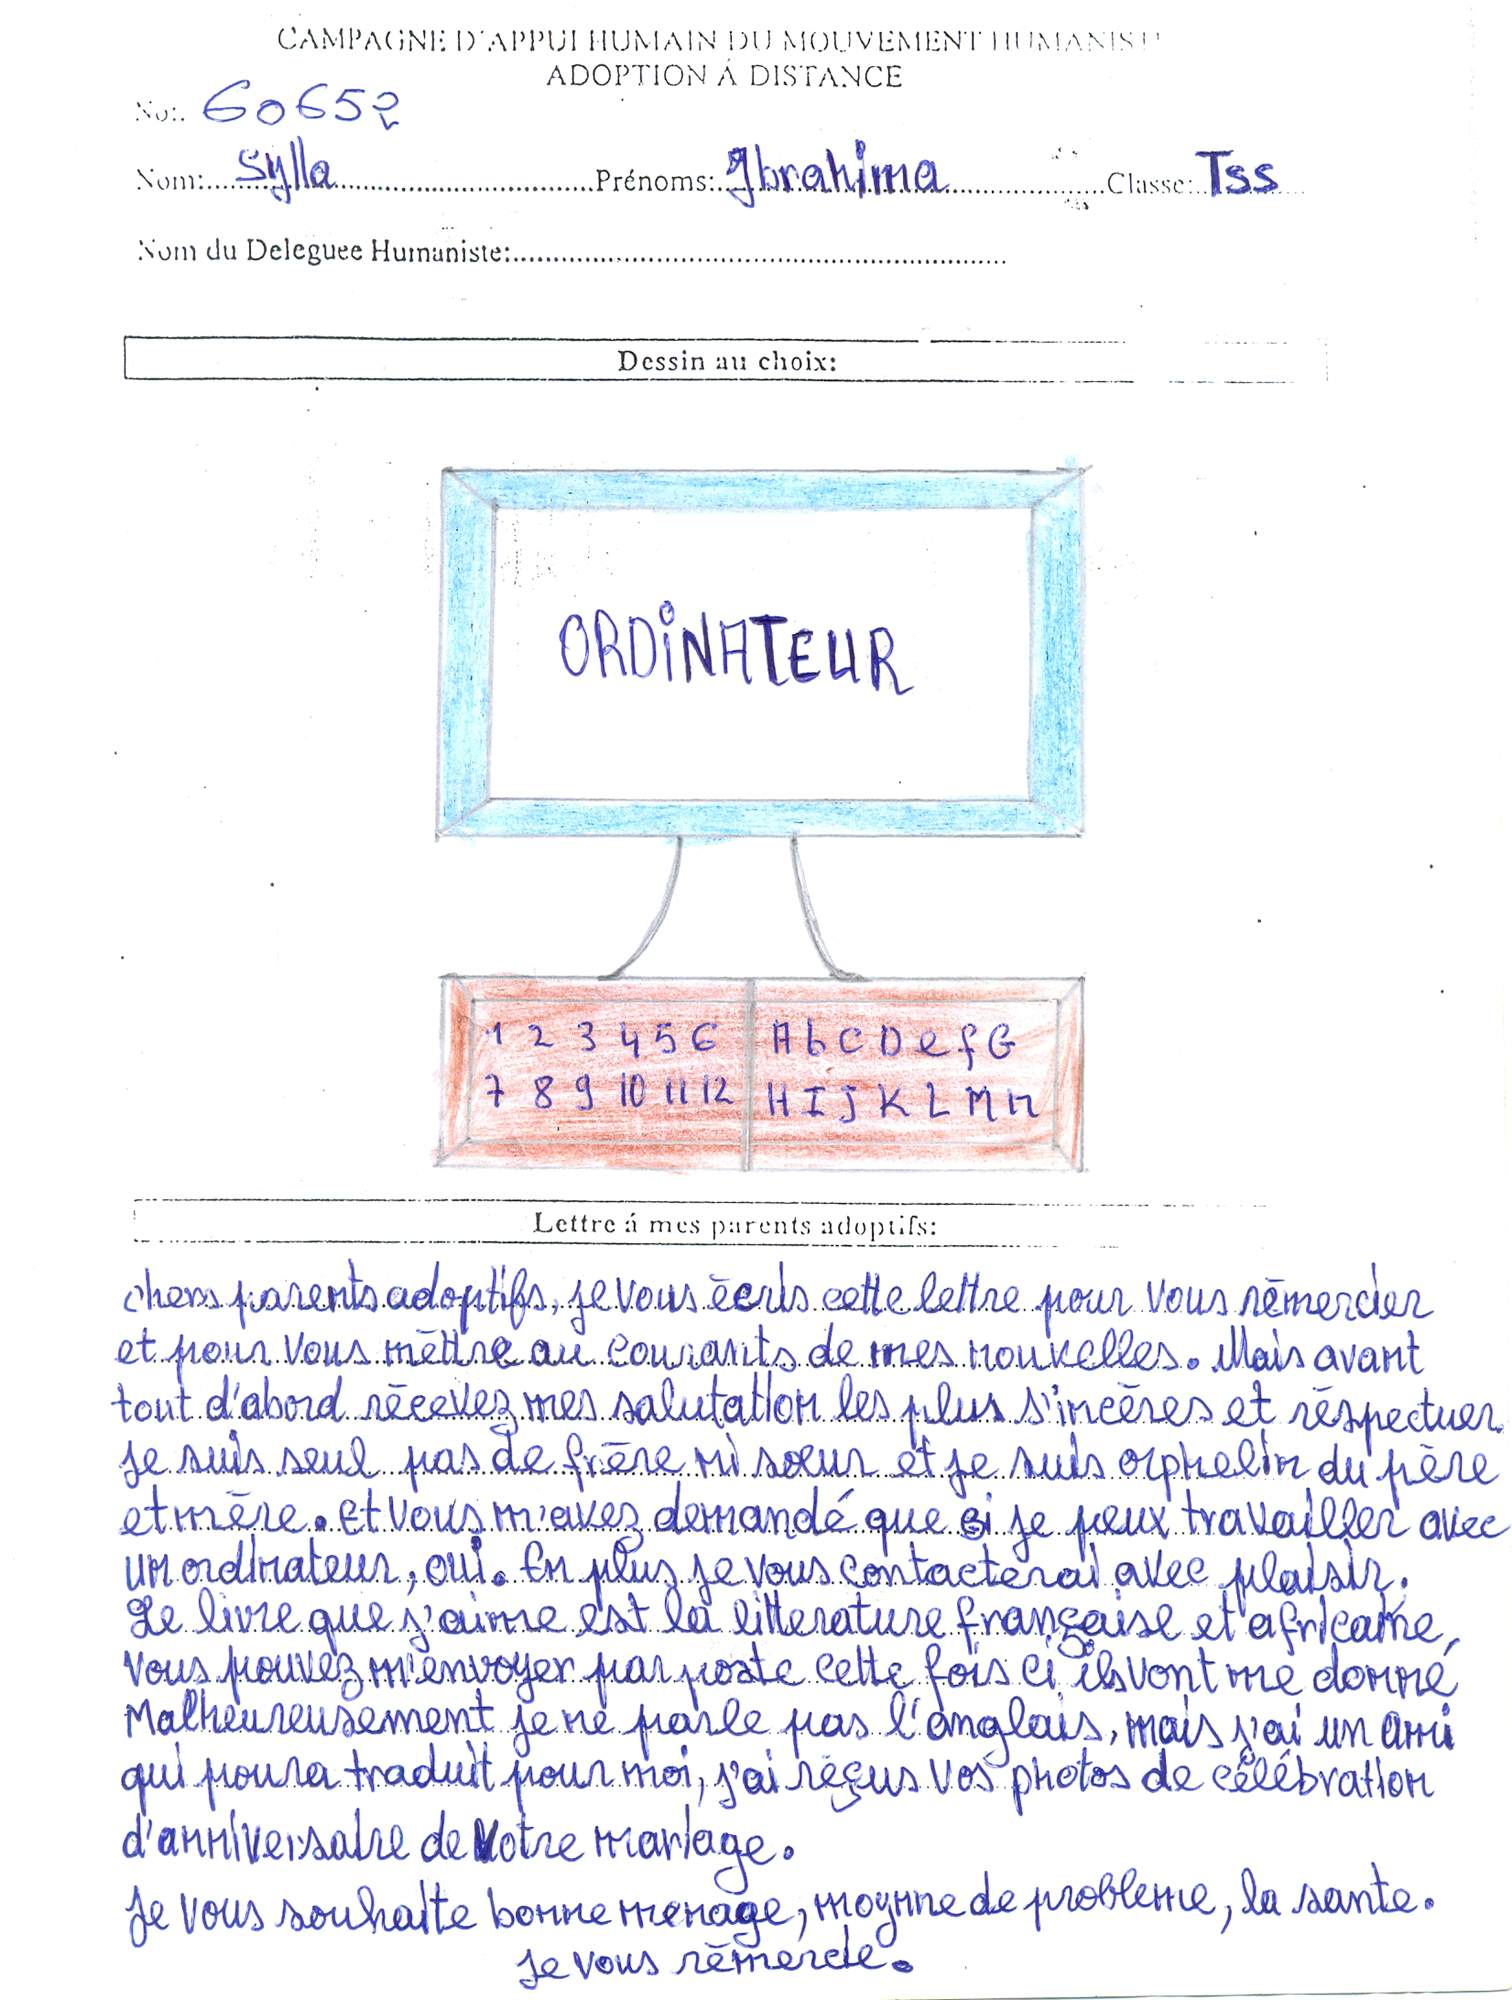 CAMPAGNE D'APPUI HUMAIN DU MOUVEMENT HUMANISTE
ADOPTION Á DISTANCE
No:. 60652
Nom:.....Sylla.....Prénoms:.Ibrahima.....Classe:.Tss
Nom du Deleguee Humaniste:.....
Dessin au choix:
ORDiNATEUR
1 2 3 4 5 6 A b C D e f G
7 8 9 10 11 12 H I J K L M N
Lettre á mes parents adoptifs:
chers parents adoptifs, je vous écris cette lettre pour vous rémercier
et pour vous méttre au courants de mes nouvelles. Mais avant
tout d'abord récevez mes salutation les plus s'incéres et réspectuer
je suis seul pas de frère ni soeur et je suis orphelin du père
et mère. Et vous m'avez demandé que si je peux travailler avec
un ordinateur, oui. En plus je vous contacterai avec plaisir.
Le livre que j'aime est la litterature française et africaine,
vous pouvez m'envoyer par poste cette fois ci ils vont me donné
Malheureusement je ne parle pas l'anglais, mais j'ai un ami
qui poura traduit pour moi, j'ai réçus vos photos de célébration
d'anniversaire de votre mariage.
Je vous souhaite bonne menage, moynne de probleme, la sante.
je vous rémercie.